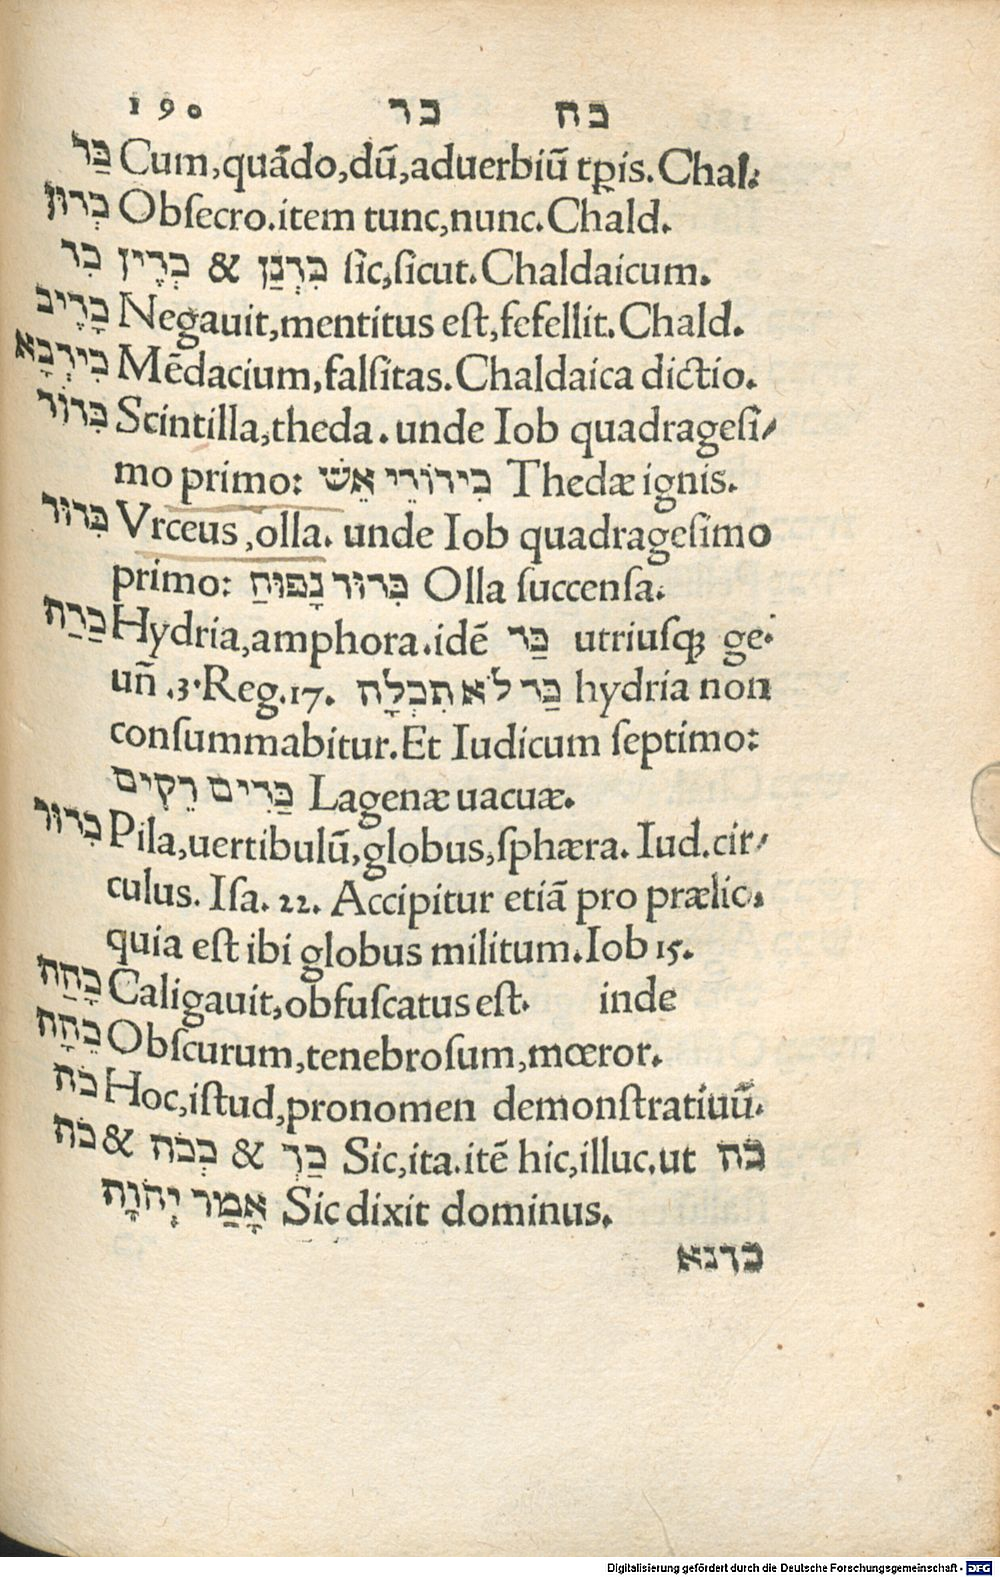 190 כד כה
כַּד Cum,quādo,dū,aduerbiū tꝑis. Chal.
כְּדוּן Obſecro.item tunc,nunc.Chald.
כִּד כְּדֵין & כִּדְנַן ſic,ſicut.Chaldaicum.
כָּדֵיב Negauit,mentitus eſt,fefellit.Chald.
כִּידְבָא Mēdacium,falſitas.Chaldaica dictio.
כִּדוֹד Scintilla,theda. unde Iob quadrageſi/
mo primo: כִּידוֹדֵי אֵשׁ Thedæ ignis.
כִּדוּד Vrceus,olla. unde Iob quadrageſimo
primo: כִּדוּד נָפוּחַ Olla ſuccenſa.
כַּדַּה Hydria,amphora.idē כַּד utriuſqꝫ ge.
un̄ .3.Reg.17. כַּד לֹא תִכְלָה hydria non
conſummabitur.Et Iudicum ſeptimo:
כַּדִים רֵקִים Lagenæ uacuæ.
כִּדוּר Pila,uertibulū,globus,ſphæra. Iud.cir/
culus. Iſa. 22. Accipitur etiā pro prælio,
quia eſt ibi globus militum.Iob 15.
כָּהַה Caligauit,obfuſcatus eſt. inde
כֵּהָה Obſcurum,tenebroſum,mœror.
כֹּה Hoc,iſtud,pronomen demonſtratiuū.
כֹּה & כְּכֹה & כַּךְ Sic,ita.itē hic,illuc.ut כֹּה
אָמַר יְהוָֹה Sic dixit dominus.
כדנא
Digitalisierung gefördert durch die Deutsche Forschungsgemeinschaft - DFG